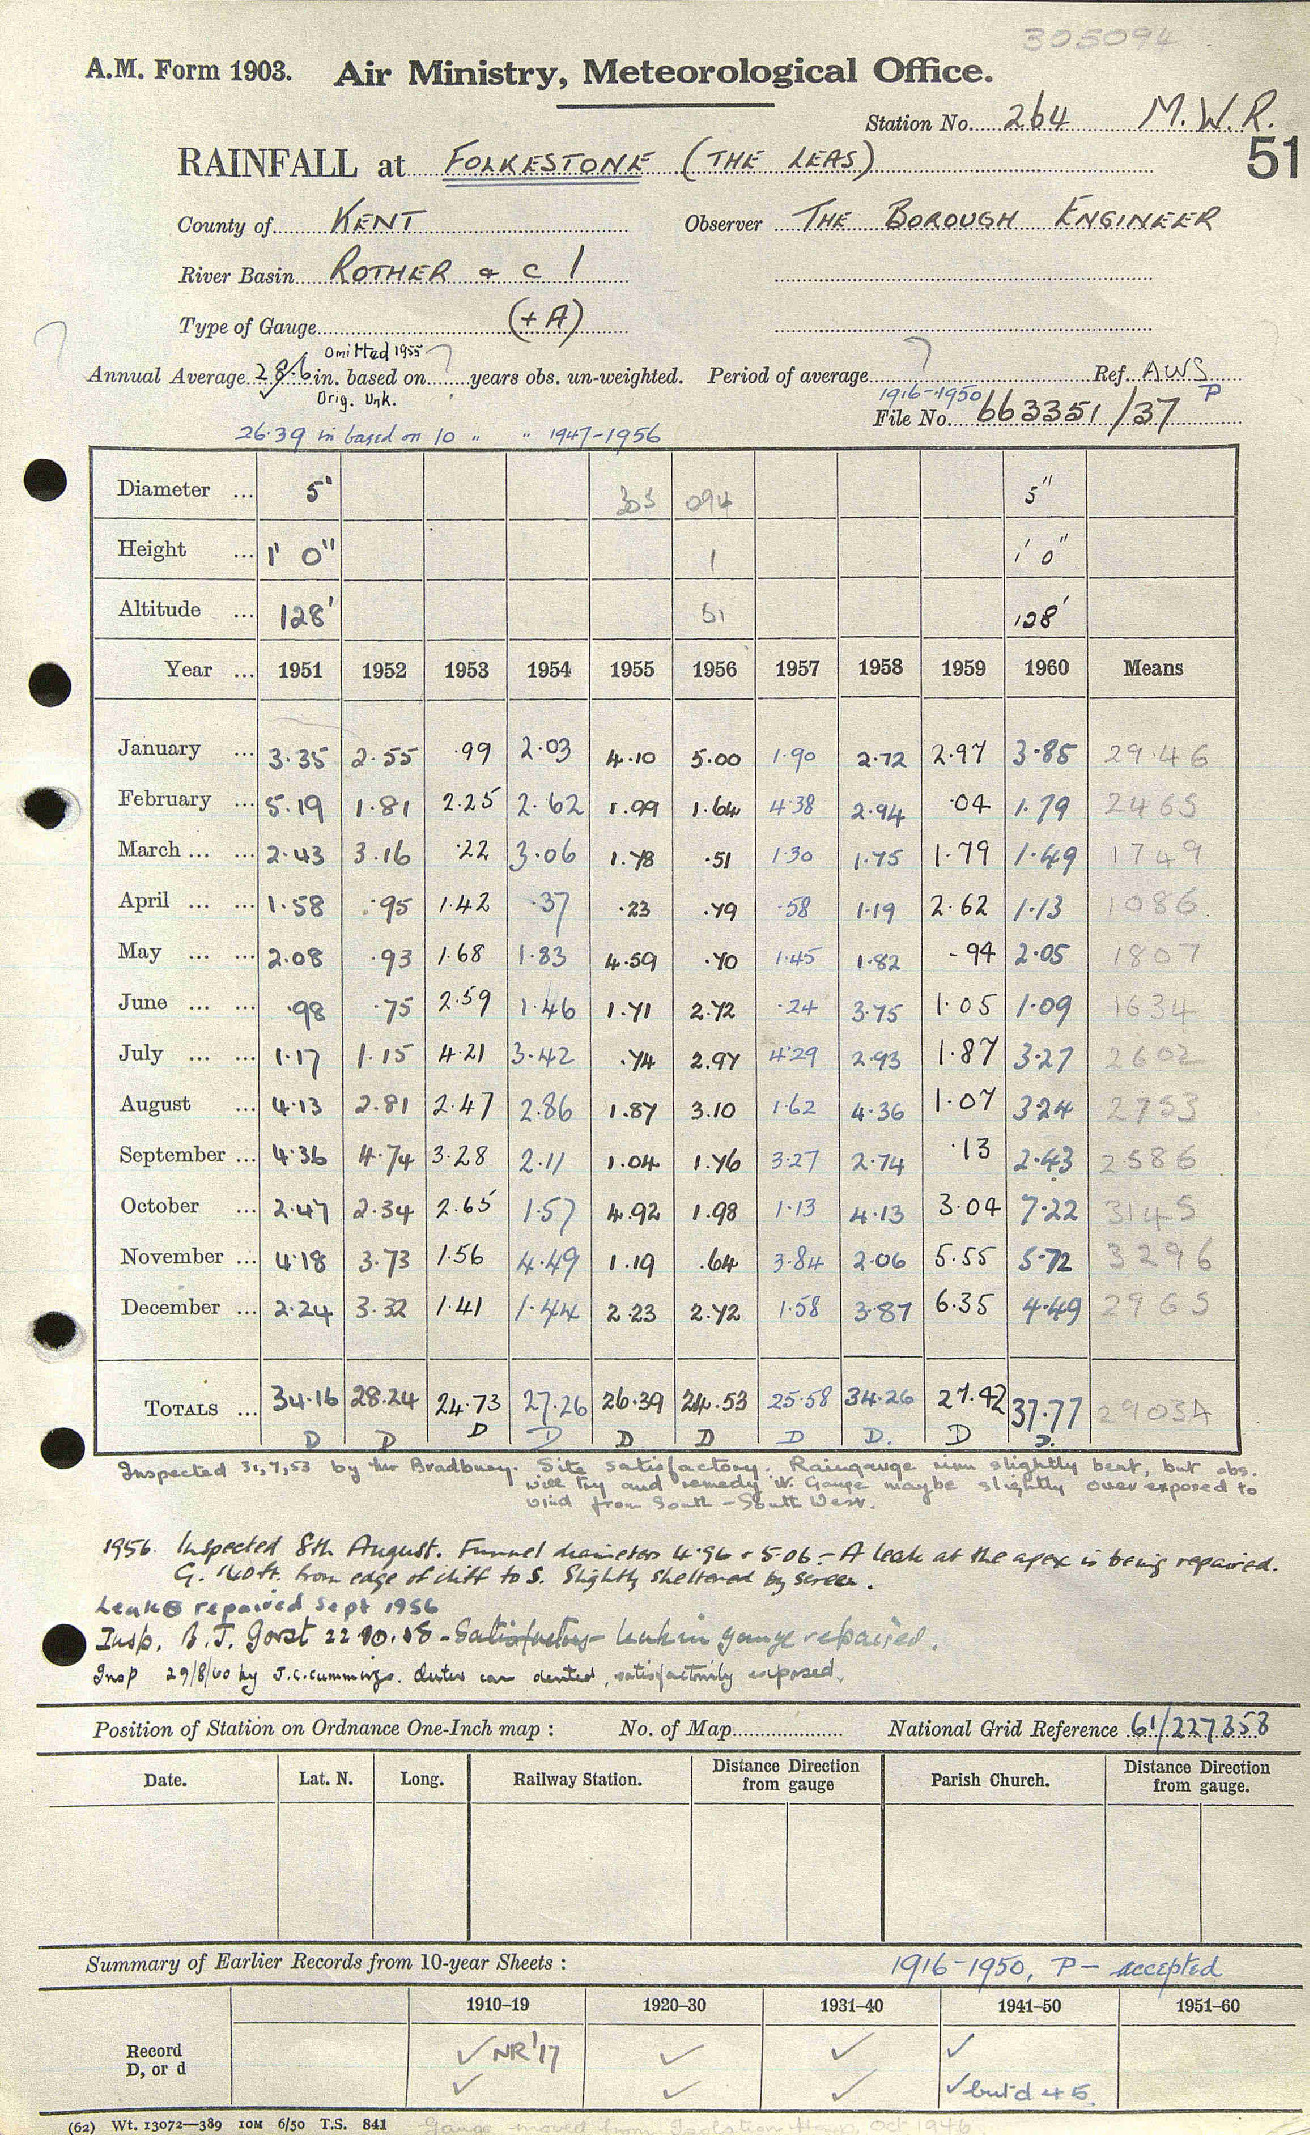 305094
A.M. Form 1903. Air Ministry, Meteorological Office.
Station No. 264 M.W.R.
51
RAINFALL at FOLKESTONE (THE LEAS)
County of KENT Observer THE BOROUGH ENGINEER
River Basin ROTHER & c 1
Type of Gauge (+A)
Omitted 1955 ?
Annual Average 28.6 in. based on ? years obs. un-weighted. Period of average ? Ref. AWS
Orig. Unk. 1916-1950 P
File No. 663351/37
26.39 in based on 10 " " 1947-1956
Diameter ... 5" 305 094 5"
Height ... 1' 0" 1 1' 0"
Altitude ... 128' 51 128'
Year ... 1951 1952 1953 1954 1955 1956 1957 1958 1959 1960 Means
January ... 3.35 2.55 .99 2.03 4.10 5.00 1.90 2.72 2.97 3.85 2946
February ... 5.19 1.81 2.25 2.62 1.99 1.64 4.38 2.94 .04 1.79 2465
March ... ... 2.43 3.16 .22 3.06 1.78 .51 1.30 1.75 1.79 1.49 1749
April ... ... 1.58 .95 1.42 .37 .23 .79 .58 1.19 2.62 1.13 1086
May ... ... 2.08 .93 1.68 1.83 4.59 .70 1.45 1.82 .94 2.05 1807
June ... ... .98 .75 2.59 1.46 1.71 2.72 .24 3.75 1.05 1.09 1634
July ... ... 1.17 1.15 4.21 3.42 .74 2.97 4.29 2.93 1.87 3.27 2602
August ... 4.13 2.81 2.47 2.86 1.87 3.10 1.62 4.36 1.07 3.24 2753
September ... 4.36 4.74 3.28 2.11 1.04 1.76 3.27 2.74 .13 2.43 2586
October ... 2.47 2.34 2.65 1.57 4.92 1.98 1.13 4.13 3.04 7.22 3145
November ... 4.18 3.73 1.56 4.49 1.19 .64 3.84 2.06 5.55 5.72 3296
December ... 2.24 3.32 1.41 1.44 2.23 2.72 1.58 3.87 6.35 4.49 2965
TOTALS ... 34.16 28.24 24.73 27.26 26.39 24.53 25.58 34.26 27.42 37.77 29034
D D D D D D D D. D D.
Inspected 31,7,53 by Mr Bradbury. Site satisfactory. Raingauge rim slightly bent, but obs.
will try and remedy it. Gauge maybe slightly over exposed to
wind from South - South West.
1956 Inspected 8th August. Funnel diameters 4.96 & 5.06 - A leak at the apex is being repaired.
G. 140 ft. from edge of cliff to S. Slightly sheltered by screen.
Leak repaired Sept 1956
Insp. B.J. Gorst 22.10.58 - Satisfactory - leak in gauge repaired.
Insp 29/8/60 by J.C. Cummings. Outer can dented, satisfactorily exposed.
Position of Station on Ordnance One-Inch map : No. of Map National Grid Reference 61/227358
Date. Lat. N. Long. Railway Station. Distance Direction from gauge Parish Church. Distance Direction from gauge.
Summary of Earlier Records from 10-year Sheets : 1916-1950, P - accepted
1910–19 1920–30 1931–40 1941–50 1951–60
Record ✓ NR '17 ✓ ✓ ✓
D, or d ✓ ✓ ✓ ✓ but d 45
(62) Wt. 13072—389 10M 6/50 T.S. 841 Gauge moved from Isolation Hosp. Oct 1946